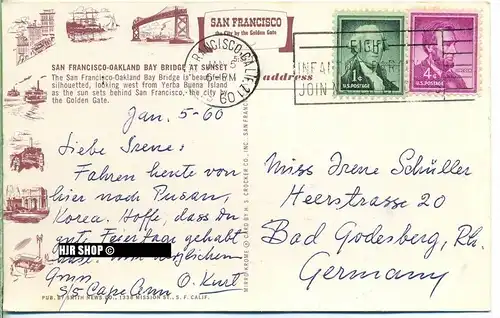 SAN FRANCISCO
the City by the Golden Gate
SAN FRANCISCO-OAKLAND BAY BRIDGE AT SUNSET
The San Francisco-Oakland Bay Bridge is
silhouetted, looking west from Yerba Buena Island
as the sun sets behind San Francisco, the city by
the Golden Gate.
address
SAN FRANCISCO, CALIF.
JAN 5
6-PM
FIGHT
JOIN
1¢
U.S. POSTAGE
4¢
U.S. POSTAGE
Jan. 5-60
Liebe Irene:
Fahren heute von
hier nach Pusan,
Korea. Hoffe, dass du
gute Feiertage gehabt
hast.
Gruss O. Kurt
S/S Cape Ann
Miss Irene Schüller
Heerstrasse 20
Bad Godesberg, Rh.
Germany
HJR SHOP ©
MIRRO-KROME ® CARD BY H. S. CROCKER CO., INC. SAN FRANCISCO
PUB. BY SMITH NEWS CO., 1339 MISSION ST., S. F. CALIF.